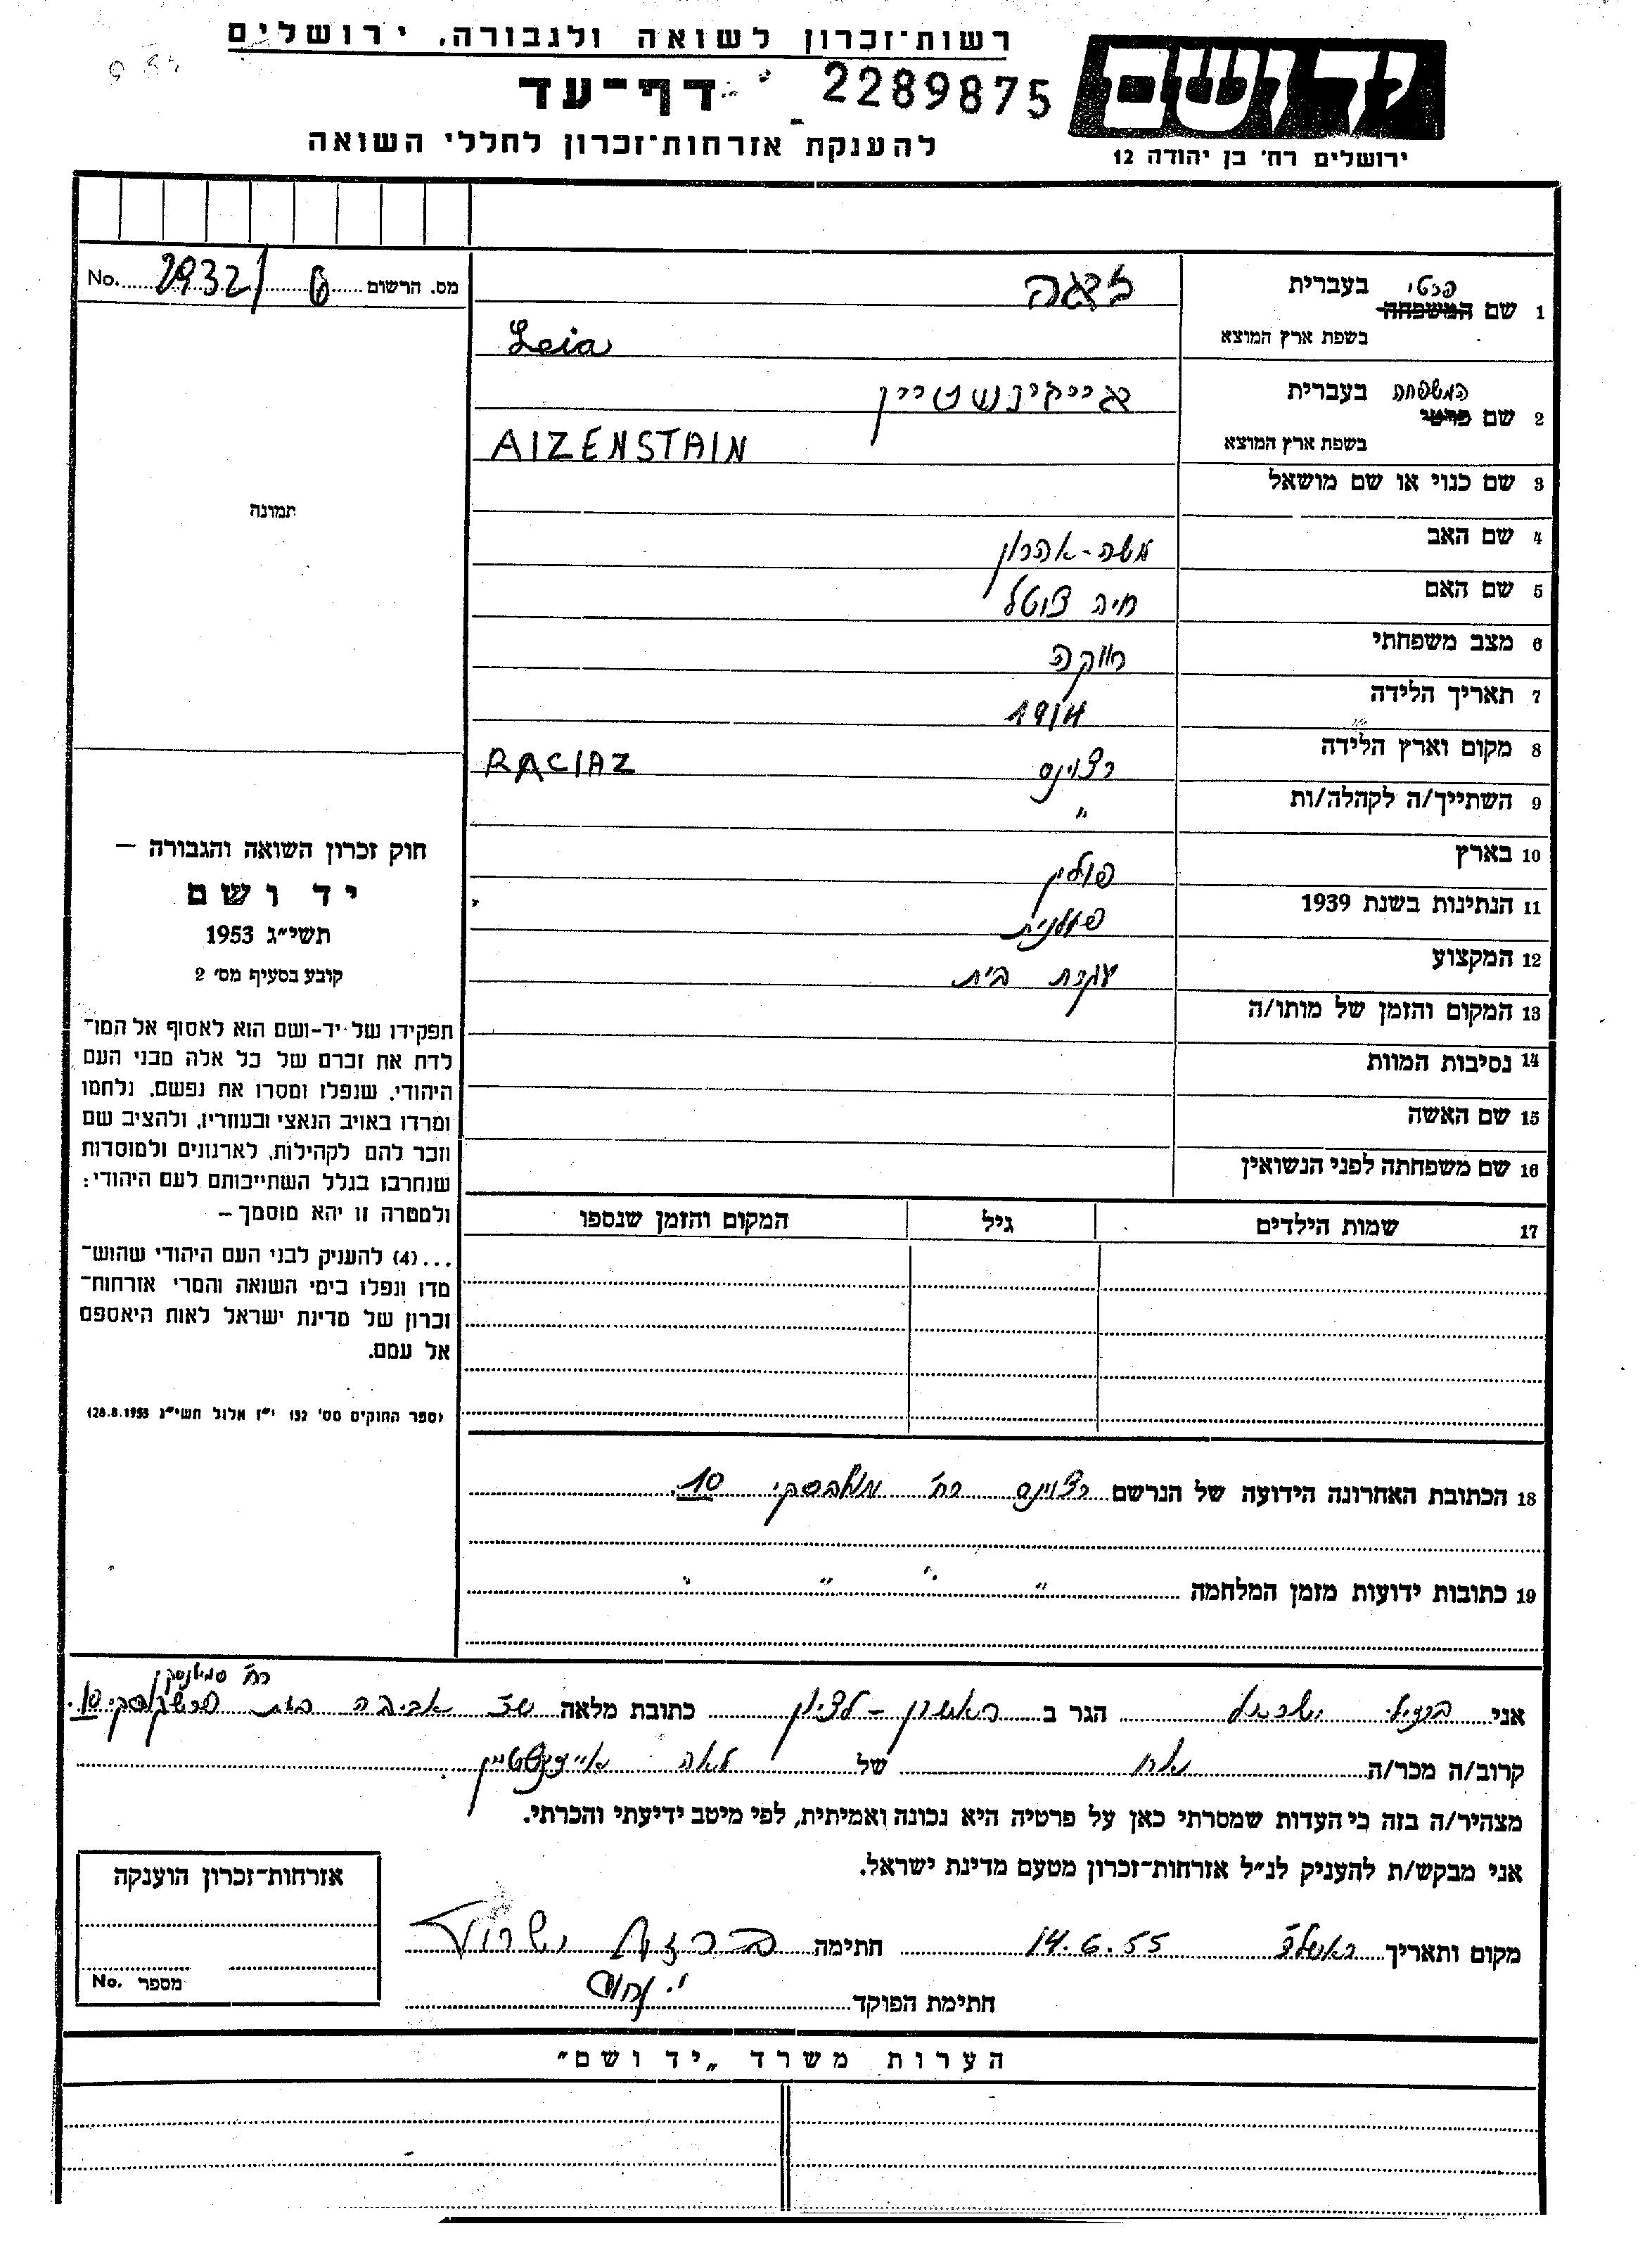 רשות־זכרון לשואה ולגבורה, ירושלים
דף־עד 2289875
להענקת אזרחות־זכרון לחללי השואה
יד ושם
ירושלים רח׳ בן יהודה 12
No. 2932/6 מס. הרשום
1 שם המשפחה פרטי בעברית לאה
בשפת ארץ המוצא Leia
2 שם פרטי המשפחה בעברית אייזינשטיין
בשפת ארץ המוצא AIZENSTAIN
3 שם כנוי או שם מושאל
4 שם האב משה-אהרון
5 שם האם חיה צוטל
6 מצב משפחתי רווקה
7 תאריך הלידה 1914
8 מקום וארץ הלידה רצוינז RACIAZ
9 השתייך/ה לקהלה/ות "
10 בארץ פולין
11 הנתינות בשנת 1939 פולנית
12 המקצוע עקרת בית
13 המקום והזמן של מותו/ה
14 נסיבות המוות
15 שם האשה
16 שם משפחתה לפני הנשואין
17 שמות הילדים גיל המקום והזמן שנספו
תמונה
חוק זכרון השואה והגבורה —
יד ושם
תשי״ג 1953
קובע בסעיף מס׳ 2
תפקידו של יד-ושם הוא לאסוף אל המו־
לדת את זכרם של כל אלה מבני העם
היהודי, שנפלו ומסרו את נפשם, נלחמו
ומרדו באויב הנאצי ובעוזריו, ולהציב שם
וזכר להם לקהילות, לארגונים ולמוסדות
שנחרבו בגלל השתייכותם לעם היהודי;
ולמטרה זו יהא מוסמך —
...(4) להעניק לבני העם היהודי שהוש־
מדו ונפלו בימי השואה והמרי אזרחות־
זכרון של מדינת ישראל לאות היאספם
אל עמם.
(ספר החוקים מס׳ 132 י״ז אלול תשי״ג 28.8.1953)
18 הכתובת האחרונה הידועה של הנרשם רצוינז רח׳ 10.
19 כתובות ידועות מזמן המלחמה " " " "
רח׳ סמילנסקי
אני ישראל הגר ב ראשון - לציון כתובת מלאה שכ׳ אביבה בית 10.
קרוב/ה מכר/ה אח של לאה אייזינשטיין
מצהיר/ה בזה כי העדות שמסרתי כאן על פרטיה היא נכונה ואמיתית, לפי מיטב ידיעתי והכרתי.
אני מבקש/ת להעניק לנ״ל אזרחות־זכרון מטעם מדינת ישראל.
מקום ותאריך ראשל״צ 14.6.55 חתימה
חתימת הפוקד
אזרחות־זכרון הוענקה
No. מספר
הערות משרד „יד ושם״